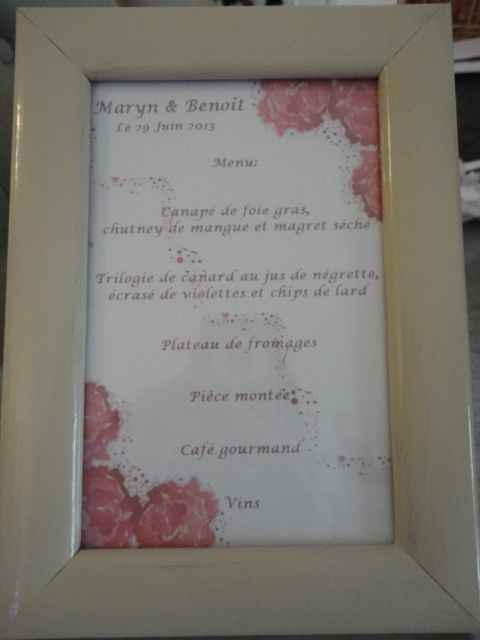 Maryn & Benoit
Le 29 Juin 2013
Menu:
Canapé de foie gras,
chutney de mangue et magret séché
Trilogie de canard au jus de négrette,
écrasé de violettes et chips de lard
Plateau de fromages
Pièce montée
Café gourmand
Vins